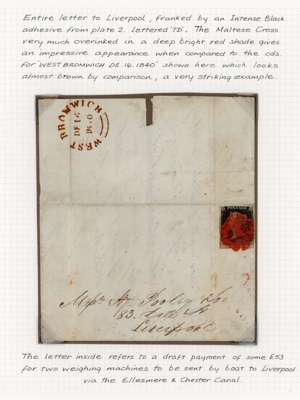 Entire letter to Liverpool, franked by an Intense Black
adhesive from plate 2. Lettered 'TD'. The Maltese Cross
very much overinked in a deep bright red shade gives
an impressive appearance when compared to the cds
for 'WEST BROMWICH DE.16.1840' shown here which looks
almost brown by comparison, a very striking example.
WEST BROMWICH
DE 16
1840
Liverpool
The letter inside refers to a draft payment of some £53
for two weighing machines to be sent by boat to Liverpool
via the Ellesmere & Chester Canal.